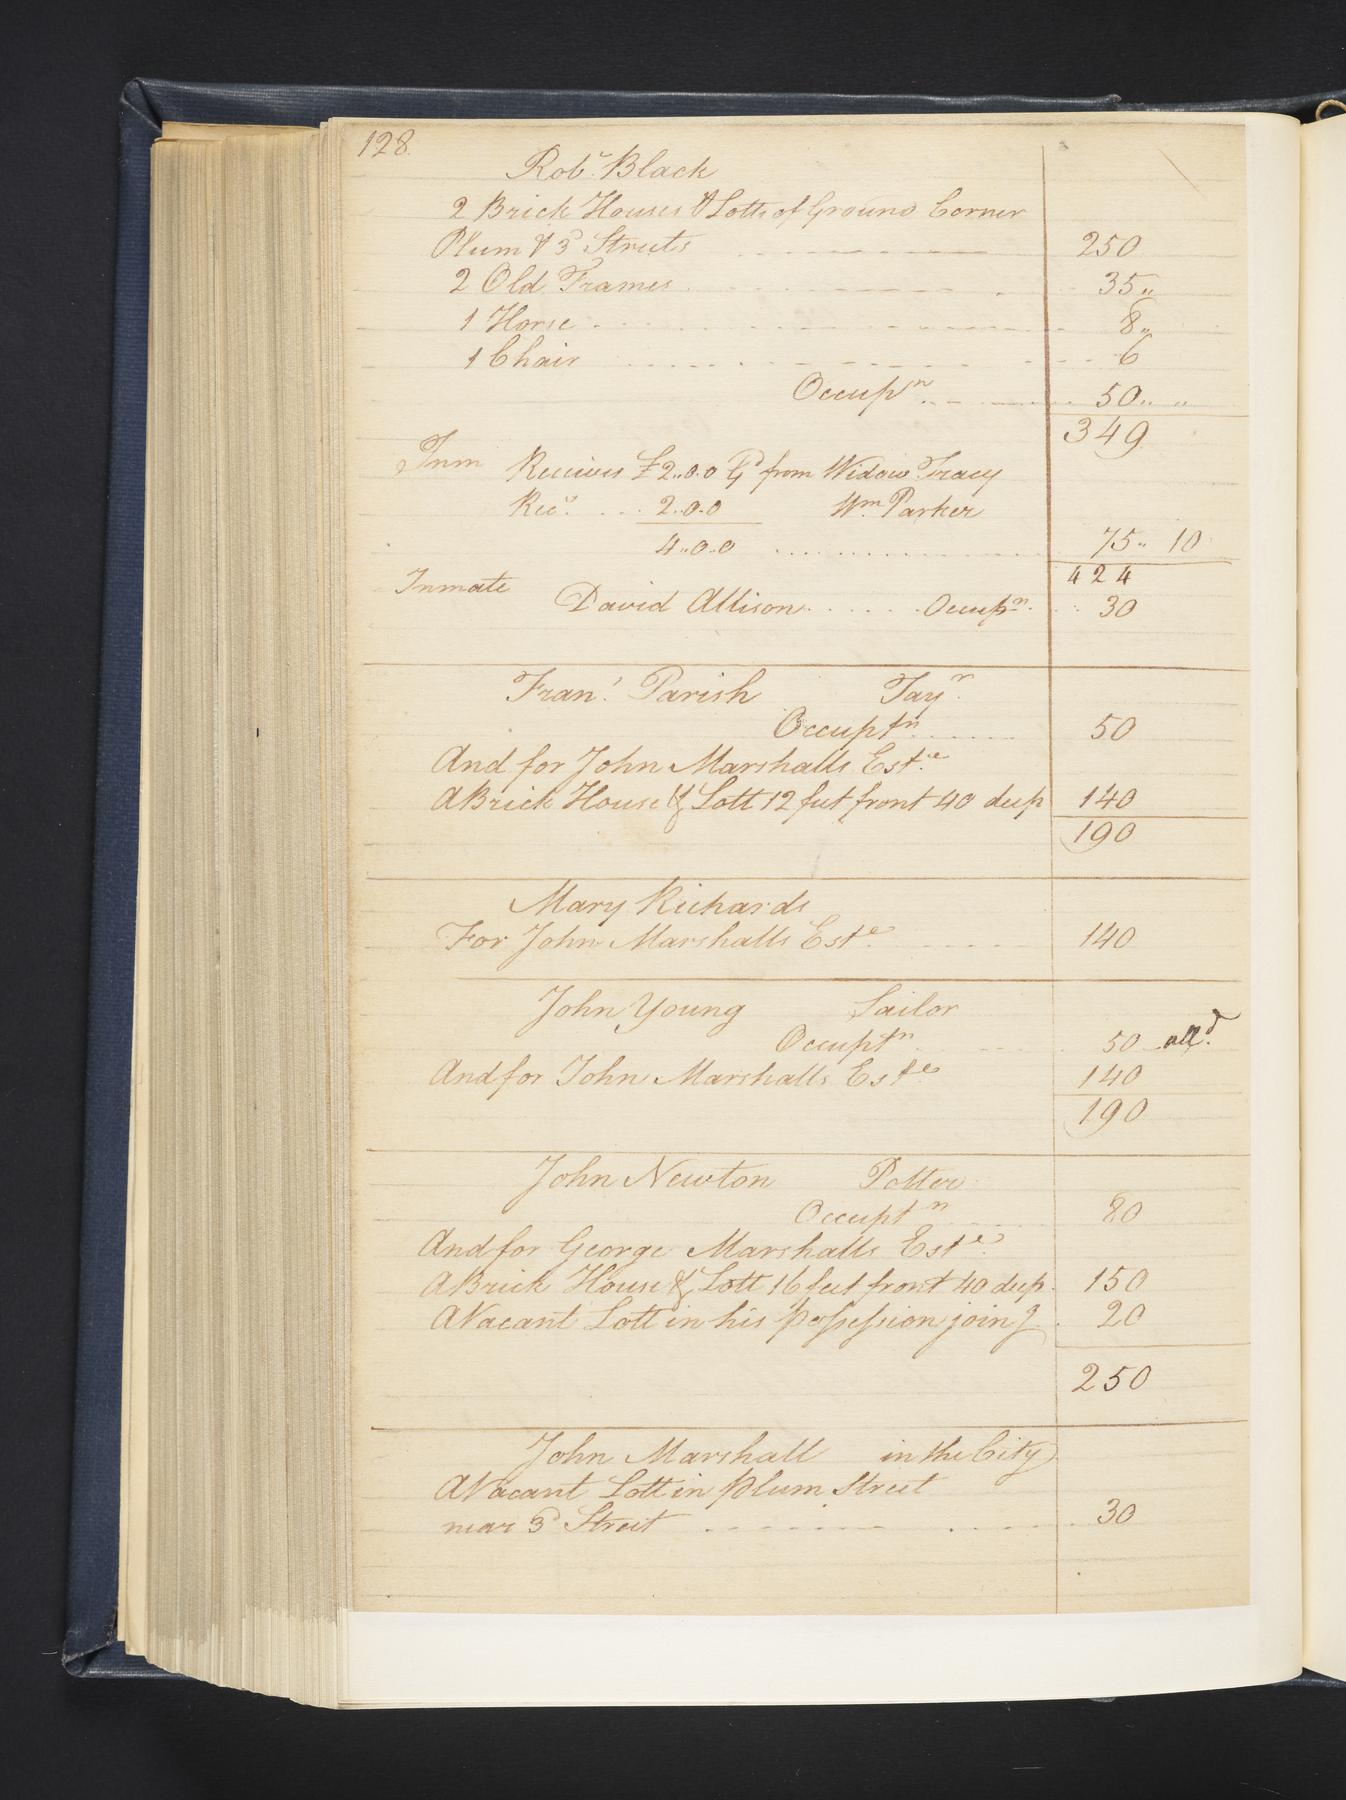 128
Robt. Black
2 Brick Houses & Lotts of Ground Corner
Plum & 3d Streets 250
2 Old Frames 35 "
1 Horse 8 "
1 Chair 6
Occupn. 50 " "
349
Inm Receives £2..0.0 Gd from Widow Tracy
Recs. 2..0.0 Wm. Parker
4..0..0 75 " 10
424
Inmate David Allison Occupn. 30
Frans. Parish Tayr.
Occuptn 50
And for John Marshalls Este.
A Brick House & Lott 12 feet front 40 deep 140
190
Mary Richards
For John Marshalls Este. 140
John Young Sailor
Occuptn 50 alld.
And for John Marshalls Este 140
190
John Newton Potter
Occuptn 80
And for George Marshalls Este.
A Brick House & Lott 16 feet front 40 deep. 150
A Vacant Lott in his possession joing 20
250
John Marshall in the City
A Vacant Lott in Plum Street
near 3d Street 30